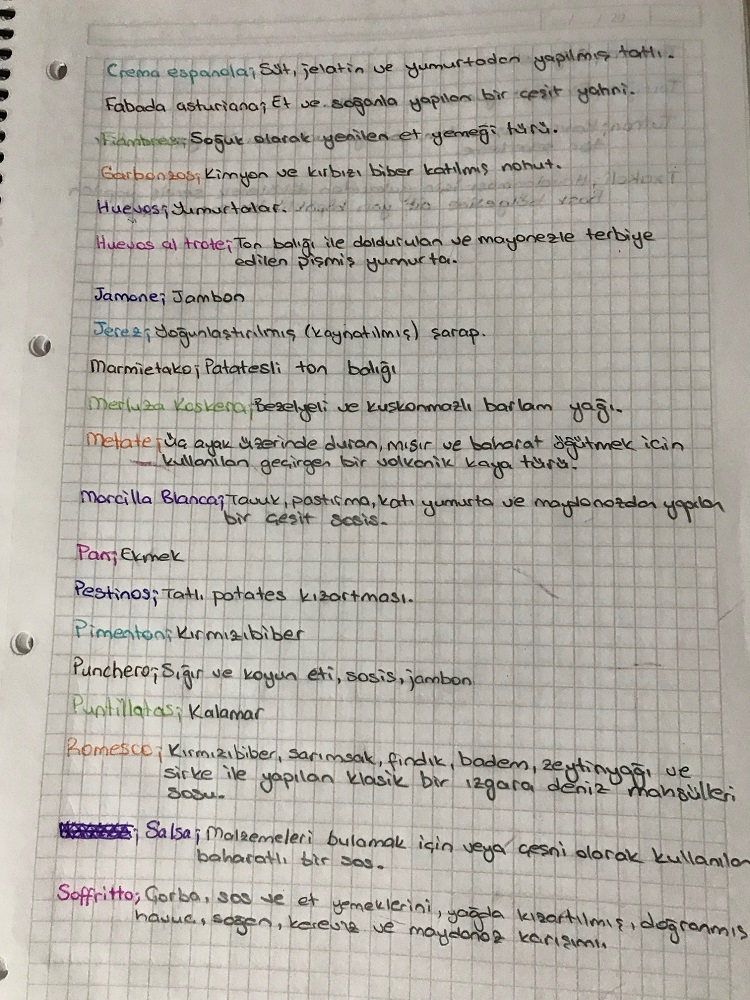 Crema espanola; Süt, jelatin ve yumurtadan yapılmış tatlı.
Fabada asturiana; Et ve soğanla yapılan bir çeşit yahni.
Fiambres; Soğuk olarak yenilen et yemeği türü.
Garbonzos; Kimyon ve kırbızı biber katılmış nohut.
Huevos; Yumurtalar.
Huevos al trote; Ton balığı ile doldurulan ve mayonezle terbiye
edilen pişmiş yumurta.
Jamone; Jambon
Jerez; Yoğunlaştırılmış (kaynatılmış) şarap.
Marmietako; Patatesli ton balığı
Merluza Koskera; Bezelyeli ve kuşkonmazlı barlam yağı.
Metate; Üç ayak üzerinde duran, mısır ve baharat öğütmek için
kullanılan geçirgen bir volkanik kaya türü.
Morcilla Blanca; Tavuk, pastırma, katı yumurta ve maydonozdan yapılan
bir çeşit sosis.
Pan; Ekmek
Pestinos; Tatlı patates kızartması.
Pimenton; Kırmızıbiber
Punchero; Sığır ve koyun eti, sosis, jambon
Puntillatas; Kalamar
Romesco; Kırmızıbiber, sarımsak, fındık, badem, zeytinyağı ve
sirke ile yapılan klasik bir ızgara deniz mahsülleri
sosu.
; Salsa; Malzemeleri bulamak için veya çeşni olarak kullanılan
baharatlı bir sos.
Soffritto; Çorba, sos ve et yemeklerini, yağda kızartılmış, doğranmış
havuc, soğan, kereviz ve maydanoz karışımı.